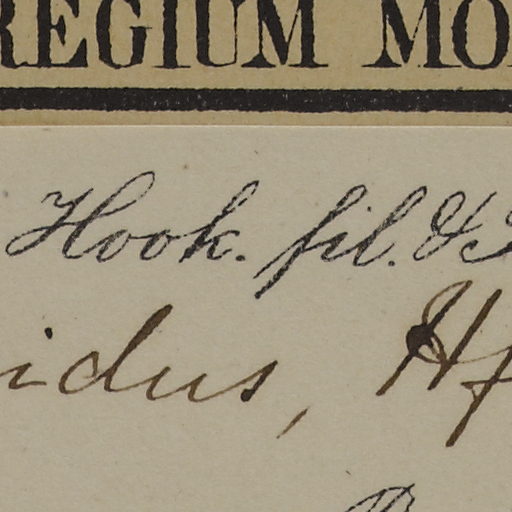 REGIUM MO
Hook. fil. &
idus, Hf